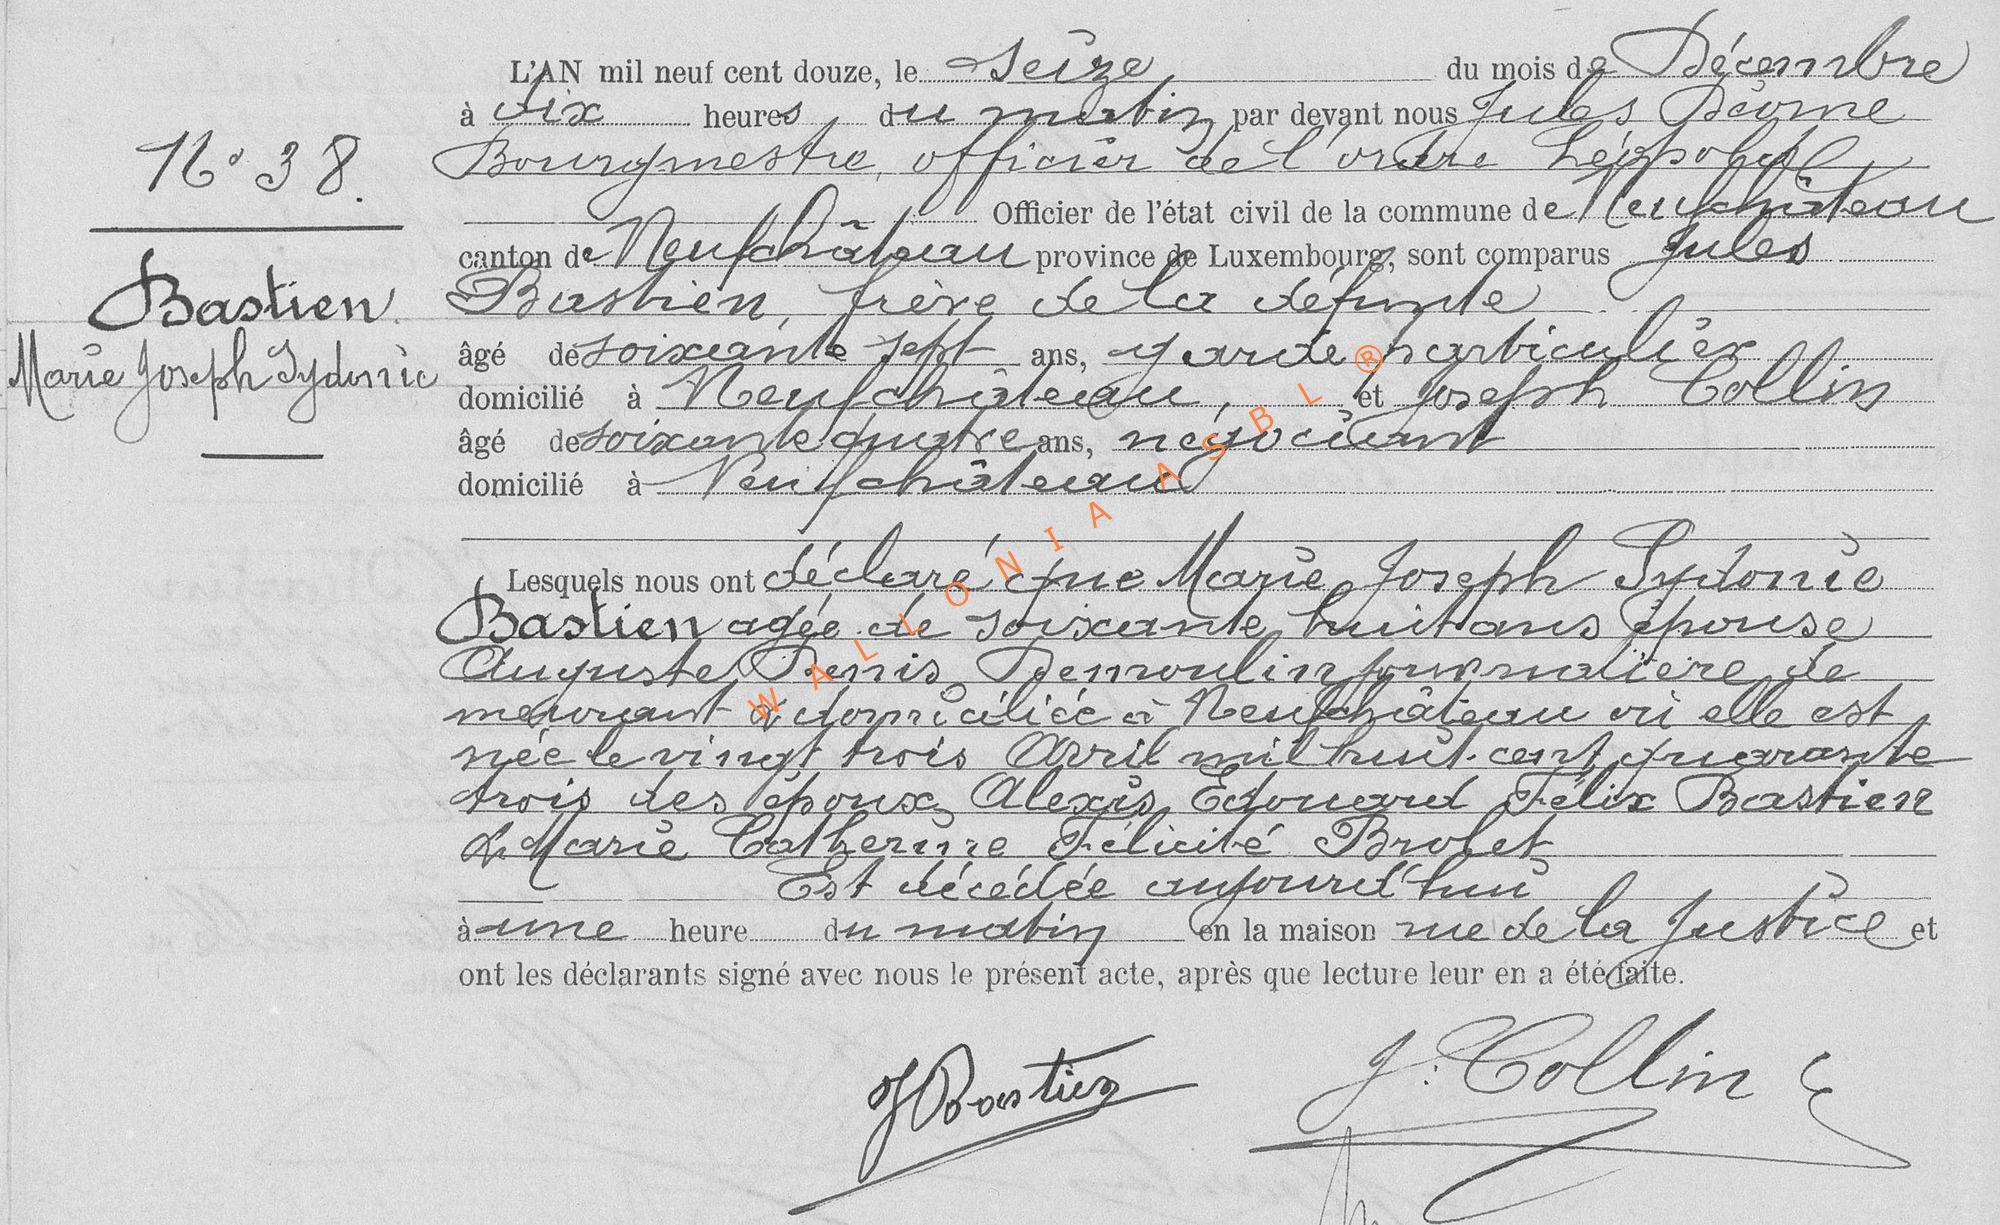 L'AN mil neuf cent douze, le seize du mois de Décembre
à dix heures du matin par devant nous Jules Déome
Bourgmestre, officier de l'ordre Léopold
Officier de l'état civil de la commune de Neufchâteau
canton de Neufchâteau province de Luxembourg, sont comparus Jules
Bastien, frère de la défunte
âgé de soixante sept ans, garde particulier
domicilié à Neufchâteau, et Joseph Collin
âgé de soixante quatre ans, négociant
domicilié à Neufchâteau
N° 38.
Bastien
Marie Joseph Sydonie
Lesquels nous ont déclaré que Marie Joseph Sydonie
Bastien agée de soixante huit ans épouse
Auguste Denis Demoulin journalière de
meurant & domiciliée à Neufchâteau où elle est
née le vingt trois Avril mil huit cent quarante
trois des époux Alexis Edouard Félix Bastien
& Marie Catherine Félicité Brolet
Est décédée aujourd'hui
à une heure du matin en la maison rue de la Justice et
ont les déclarants signé avec nous le présent acte, après que lecture leur en a été faite.
J Bastien
J. Collin
WALLONIA ASBL ®